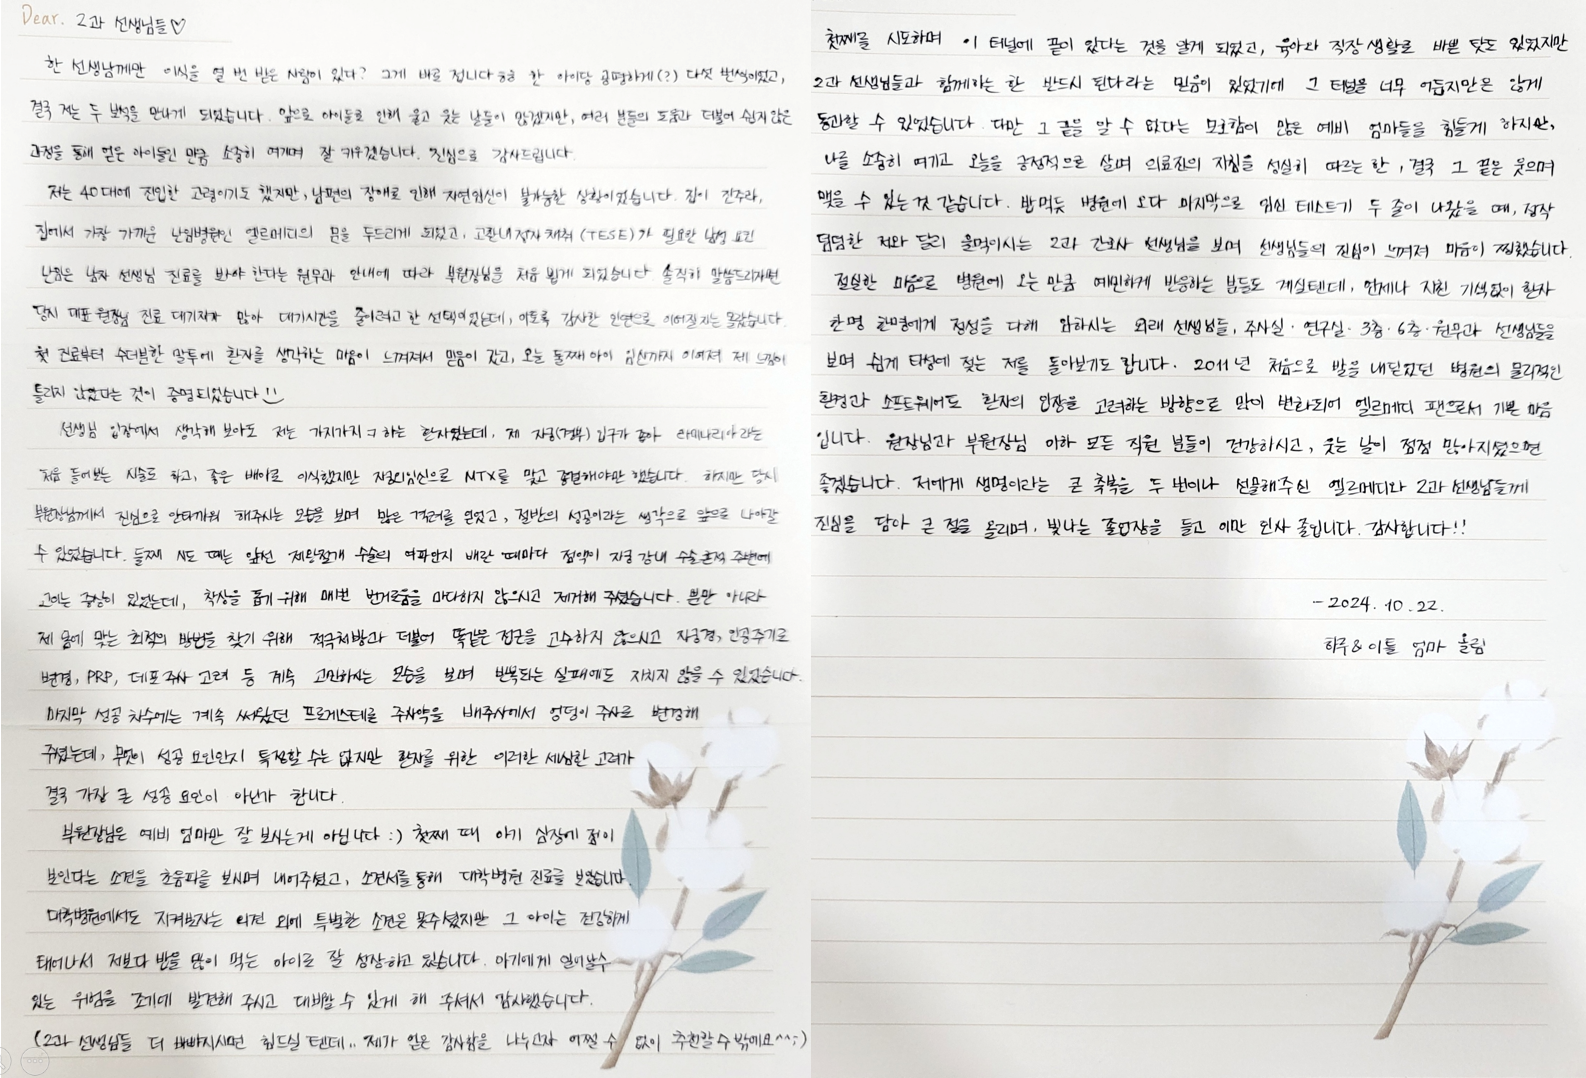 Dear. 2과 선생님들♡
한 선생님께만 이식을 열 번 받은 사람이 있다? 그게 바로 접니다ㅎㅎ 한 아이당 공평하게(?) 다섯 번씩이었고,
결국 저는 두 보석을 만나게 되었습니다. 앞으로 아이들로 인해 울고 웃는 날들이 많겠지만, 여러 분들의 도움과 더불어 쉽지 않은
과정을 통해 얻은 아이들인 만큼 소중히 여기며 잘 키우겠습니다. 진심으로 감사드립니다.
저는 40대에 진입한 고령이기도 했지만, 남편의 장애로 인해 자연임신이 불가능한 상황이었습니다. 집이 간주라,
집에서 가장 가까운 난임병원인 엘르메디의 문을 두드리게 되었고, 고환내정자채취(TESE)가 필요한 남성 요인
난임은 남자 선생님 진료를 봐야 한다는 원무과 안내에 따라 부원장님을 처음 뵙게 되었습니다. 솔직히 말씀드리자면
당시 대표 원장님 진료 대기자가 많아 대기시간을 줄이려고 한 선택이었는데, 이토록 감사한 인연으로 이어질지는 몰랐습니다.
첫 진료부터 수더분한 말투에 환자를 생각하는 마음이 느껴져서 믿음이 갔고, 오늘 둘째아이 임신까지 이어져 제 느낌이
틀리지 않았다는 것이 증명되었습니다!!
선생님 입장에서 생각해 보아도 저는 가지가지ㅋ 하는 환자였는데, 제 자궁(경부) 입구가 좁아 라미나리아라는
처음 들어보는 시술도 하고, 좋은 배아로 이식했지만 자궁외임신으로 MTX를 맞고 종결해야만 했습니다. 하지만 당시
부원장님께서 진심으로 안타까워 해주시는 모습을 보며 많은 격려를 얻었고, 절반의 성공이라는 생각으로 앞으로 나아갈
수 있었습니다. 둘째 시도 때는 앞선 제왕절개 수술의 여파인지 배란 때마다 점액이 자궁 강내 수술흔적 주변에
고이는 증상이 있었는데, 착상을 돕기 위해 매번 번거로움을 마다하지 않으시고 제거해 주셨습니다. 뿐만 아니라
제 몸에 맞는 최적의 방법을 찾기 위해 적극처방과 더불어 똑같은 접근을 고수하지 않으시고 자궁경, 인공주기로
변경, PRP, 데포주사 고려 등 계속 고민하시는 모습을 보며 반복되는 실패에도 지치지 않을 수 있었습니다.
마지막 성공 차수에는 계속 써왔던 프로게스테론 주사약을 배주사에서 엉덩이 주사로 변경해
주셨는데, 무엇이 성공 요인인지 특정할 수는 없지만 환자를 위한 이러한 세심한 고려가
결국 가장 큰 성공 요인이 아닌가 합니다.
부원장님은 예비 엄마만 잘 보시는게 아닙니다 :) 첫째 때 아기 심장에 점이
보인다는 소견을 초음파를 보시며 내어주셨고, 소견서를 통해 대학병원 진료를 보았습니다.
대학병원에서도 지켜보자는 의견 외에 특별한 소견은 못주셨지만 그 아이는 건강하게
태어나서 저보다 밥을 많이 먹는 아이로 잘 성장하고 있습니다. 아기에게 일어날수
있는 위험을 조기에 발견해 주시고 대비할 수 있게 해 주셔서 감사했습니다.
(2과 선생님들 더 바빠지시면 힘드실 텐데.. 제가 얻은 감사함을 나누고자 어쩔 수 없이 추천할수밖에요^^;)
첫째를 시도하며 이 터널에 끝이 있다는 것을 알게 되었고, 육아와 직장생활로 바쁜 탓도 있었지만
2과 선생님들과 함께하는 한 반드시 된다라는 믿음이 있었기에 그 터널을 너무 어둡지만은 않게
통과할 수 있었습니다. 다만 그 끝을 알 수 없다는 모호함이 많은 예비 엄마들을 힘들게 하지만,
나를 소중히 여기고 오늘을 긍정적으로 살며 의료진의 지침을 성실히 따르는 한, 결국 그 끝은 웃으며
맺을 수 있는 것 같습니다. 밥먹듯 병원에 오다 마지막으로 임신 테스트기 두 줄이 나왔을 때, 정작
덤덤한 저와 달리 울먹이시는 2과 간호사 선생님을 보며 선생님들의 진심이 느껴져 마음이 찡했습니다.
절실한 마음으로 병원에 오는 만큼 예민하게 반응하는 분들도 계실텐데, 언제나 지친 기색없이 환자
한명 한명에게 정성을 다해 임하시는 외래 선생님들, 주사실·연구실·3층·6층·원무과 선생님들을
보며 쉽게 타성에 젖는 저를 돌아보기도 합니다. 2011년 처음으로 발을 내딛었던 병원의 물리적인
환경과 소프트웨어도 환자의 입장을 고려하는 방향으로 많이 변화되어 엘르메디 팬으로서 기쁜 마음
입니다. 원장님과 부원장님 이하 모든 직원 분들이 건강하시고, 웃는 날이 점점 많아지셨으면
좋겠습니다. 저에게 생명이라는 큰 축복을 두 번이나 선물해주신 엘르메디와 2과선생님들께
진심을 담아 큰 절을 올리며, 빛나는 졸업장을 들고 이만 인사 줄입니다. 감사합니다!!
- 2024. 10. 22.
하루&이틀 엄마 올림